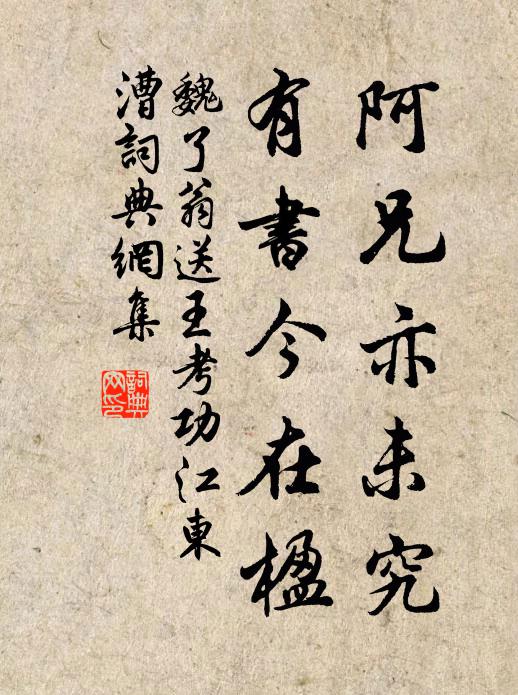 阿兄亦未究
有書今在楹
魏了翁送王考功江東
漕詞典網集
詞典
网印